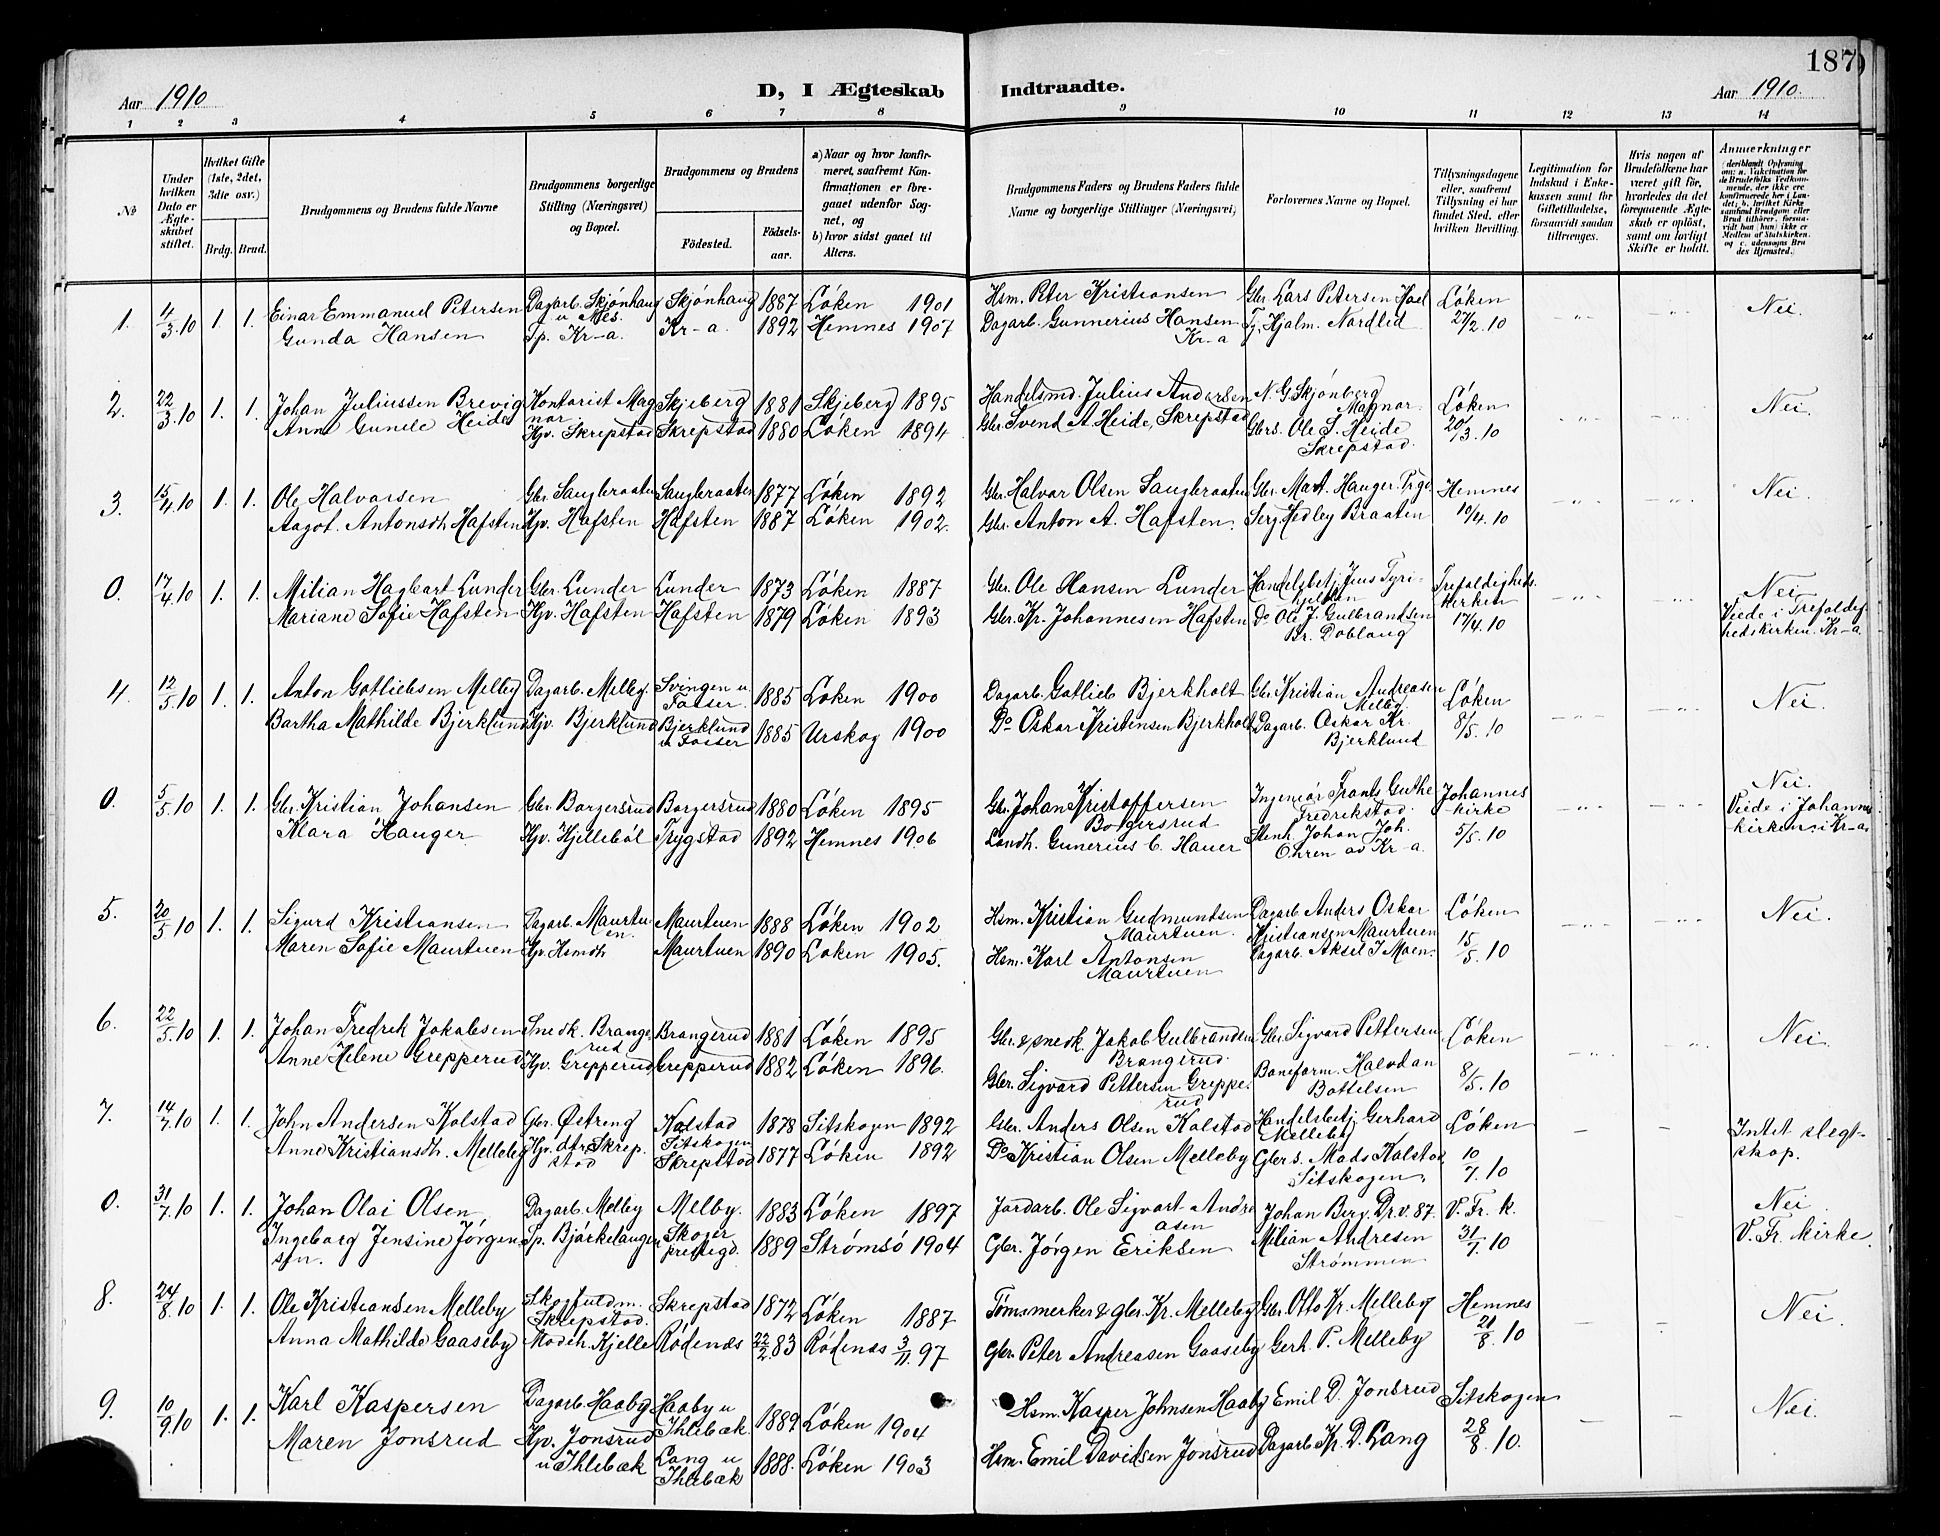 187
Aar 1910. D, I Ægteskab Indtraadte. Aar 1910.
1 2 3 4 5 6 7 8 9 10 11 12 13 14
No
Under hvilken Dato er Ægteskabet stiftet.
Hvilket Gifte (1ste, 2det, 3die osv.)
Brdg. Brud.
Brudgommens og Brudens fulde Navne
Brudgommens borgerlige Stilling (Næringsvei) og Bopæl.
Brudgommens og Brudens
Fødested. Fødselsaar.
a) Naar og hvor konfirmeret, saafremt Konfirmationen er foregaaet udenfor Sognet, og
b) hvor sidst gaaet til Alters.
Brudgommens Faders og Brudens Faders fulde Navne og borgerlige Stillinger (Næringsvei)
Forlovernes Navne og Bopæl.
Tillysningsdagene eller, saafremt Tillysning ei har fundet Sted, efter hvilken Bevilling.
Legitimation for Indskud i Enkekassen samt for Giftetilladelse, forsaavidt saadan tiltrænges.
Hvis nogen af Brudefolkene har været gift før, hvorledes da det foregaaende Ægteskab er opløst, samt om lovligt Skifte er holdt.
Anmerkninger
(deriblandt Oplysning om: a. Vakcination for de Brudefolks Vedkommende, der ikke ere konfirmerede her i Landet; b. hvilket Kirkesamfund Brudgom eller Brud tilhører, forsaavidt han (hun) ikke er Medlem af Statskirken, og c. udensogns Brudes Hjemsted.)
1. 4/3.10 1. 1. Einar Emmanuel Petersen Dagarb. Skjønhaug u Mes. Skjønhaug 1887 Løken 1901 Hsm. Peter Kristiansen Gbr. Lars Petersen Løken 27/2.10 Nei.
Gunda Hansen Tp. Kr-a. Kr-a. 1892 Hemnes 1907 Dagarb. Gunnerius Hansen Kr-a Tj. Hjalm. Nordlid
2. 22/3.10 1. 1. Johan Juliussen Brevig Kontorist Magnor Skjeberg 1881 Skjeberg 1895 Handelsmd. Julius Andersen N. G. Skjønberg Magnor. Løken 20/3.10 Nei.
Anne Gunele Heide Hjv. Skrepstad Skrepstad 1880 Løken 1894 Gbr. Svend A. Heide, Skrepstad Gbrs. Ole S. Heide Skrepstad.
3. 15/4.10 1. 1. Ole Halvorsen Gbr. Saugbraaten Saugbraaten 1877 Løken 1892 Gbr. Halvor Olsen Saugbraaten Gbr. Mart. Hauger. Trgd. Hemnes 10/4.10 Nei.
Aagot. Antonsdh Hafsten Hjv. Hafsten Hafsten 1887 Løken 1902. Gbr. Anton A. Hafsten. Serg. Hedley Braaten
0. 17/4.10 1. 1. Milian Hagbart Lunder Gbr. Lunder Lunder 1873 Løken 1887 Gbr. Ole Hansen Lunder Handelsbetj. Jens Tyrigjelsen Trefoldighedskirken 17/4.10 Nei
Mariane Sofie Hafsten Hjv. Hafsten Hafsten 1879 Løken 1893 Gbr. Kr. Johannesen Hafsten Do Ole J. Gulbrandsen Br. Doblaug Viede i Trefoldighedskirken. Kr-a.
4. 12/5.10 1. 1. Anton Gotliebsen Melby Dagarb. Melby. Svingen u. Fosser. 1885 Løken 1900 Dagarb. Gotlieb Bjerkholt Gbr. Kristian Andreasen Melby. Løken 8/5.10 Nei.
Bartha Mathilde Bjerklund Hjv. Bjerklund Bjerklund u Fosser 1885 Urskog 1900 Do Oskar Kristensen Bjerkholt Dagarb. Oskar Kr. Bjerklund
0. 5/5.10 1. 1. Gbr. Kristian Johansen Gbr. Borgersrud Borgersrud 1880 Løken 1895 Gbr. Johan Kristoffersen Borgersrud Ingeniør Frants Guthe Fredrikstad. Johannes kirke 5/5.10 Nei.
Mara Hauger Hjv. Hjellebøl Trygstad 1892 Hemnes 1906 Landh. Gunerius C. Hauer Stenh. Johan Joh. Ohren av Kr-a. Viede i Johannes kirken i Kr-a.
5. 20/5.10 1. 1. Sigurd Kristiansen Dagarb. Maurtuen. Maurtuen 1888 Løken 1902 Hsm. Kristian Gudmundsen Maurtuen. Dagarb Anders Oskar Kristiansen Maurtuen Løken 15/5.10 Nei.
Maren Sofie Maurtuen Hjv. Hsmdh Maurtuen 1890 Løken 1905. Hsm. Karl Antonsen Maurtuen Dagarb. Aksel J Moen.
6. 22/5.10 1. 1. Johan Fredrik Jakobsen Snedk. Brangerud Brangerud 1881 Løken 1895 Gbr. & snedk. Jakob Gulbrandsen Brangerud. Gbr. Sigvard Pettersen Løken 8/5.10 Nei.
Anne Helene Grepperud Hjv. Grepperud Grepperud 1882 Løken 1896. Gbr. Sigvard Pettersen Grepperud Baneform. Halvdan Bottelsen
7. 14/7.10 1. 1. John Andersen Kolstad Gbr. Østreng Kolstad Sitskogen 1878 Sitskogen 1892 Gbr. Anders Olsen Kolstad Handelsbetj. Gerhard Melleby Løken 10/7.10 Intet slegtskap.
Anne Kristiansdh. Melleby Hjv. dtr. Skrepstad Skrepstad 1877 Løken 1892 Do Kristian Olsen Melleby Gbrs. Mads Kolstad, Sitskogen.
0. 31/7.10 1. 1. Johan Olai Olsen Dagarb. Melby Melby. 1883 Løken 1897 Jordarb. Ole Sigvart Andreasen Johan Berg. Dr.v. 87. V. Fr. k. 31/7.10 Nei
Ingeborg Jensine Jørgensen. Tp. Bjørkelangen Skoger prestegd. 1889 Strømsø 1904 Gbr. Jørgen Eriksen Milian Andresen Strømmen V. Fr. kirke.
8. 24/8.10 1. 1. Ole Kristiansen Melleby Skogfuldm. Skrepstad. Skrepstad 1872 Løken 1887 Tømmerker & gbr. Kr. Melleby Gbr. Otto Kr. Melleby Hemnes 21/8.10 Nei.
Anna Mathilde Gaaseby Modeh. Kjelle Rødenæs 22/2.83 Rødenæs 3/11.97 Gbr. Peter Andreasen Gaaseby Gerh. P. Melleby
9. 10/9.10 1. 1. Karl Kaspersen Dagarb. Haaby Haaby u Ihlebæk. 1889 Løken 1904 Hsm. Kasper Johnsen Haaby Emil D. Jonsrud Sitskogen 28/8.10. Nei.
Maren Jonsrud Hjv. Jonsrud u Ihlebæk Lang u Ihlebæk 1888. Løken 1903 Hsm. Emil Davidsen Jonsrud Dagarb. Kr. D. Lang